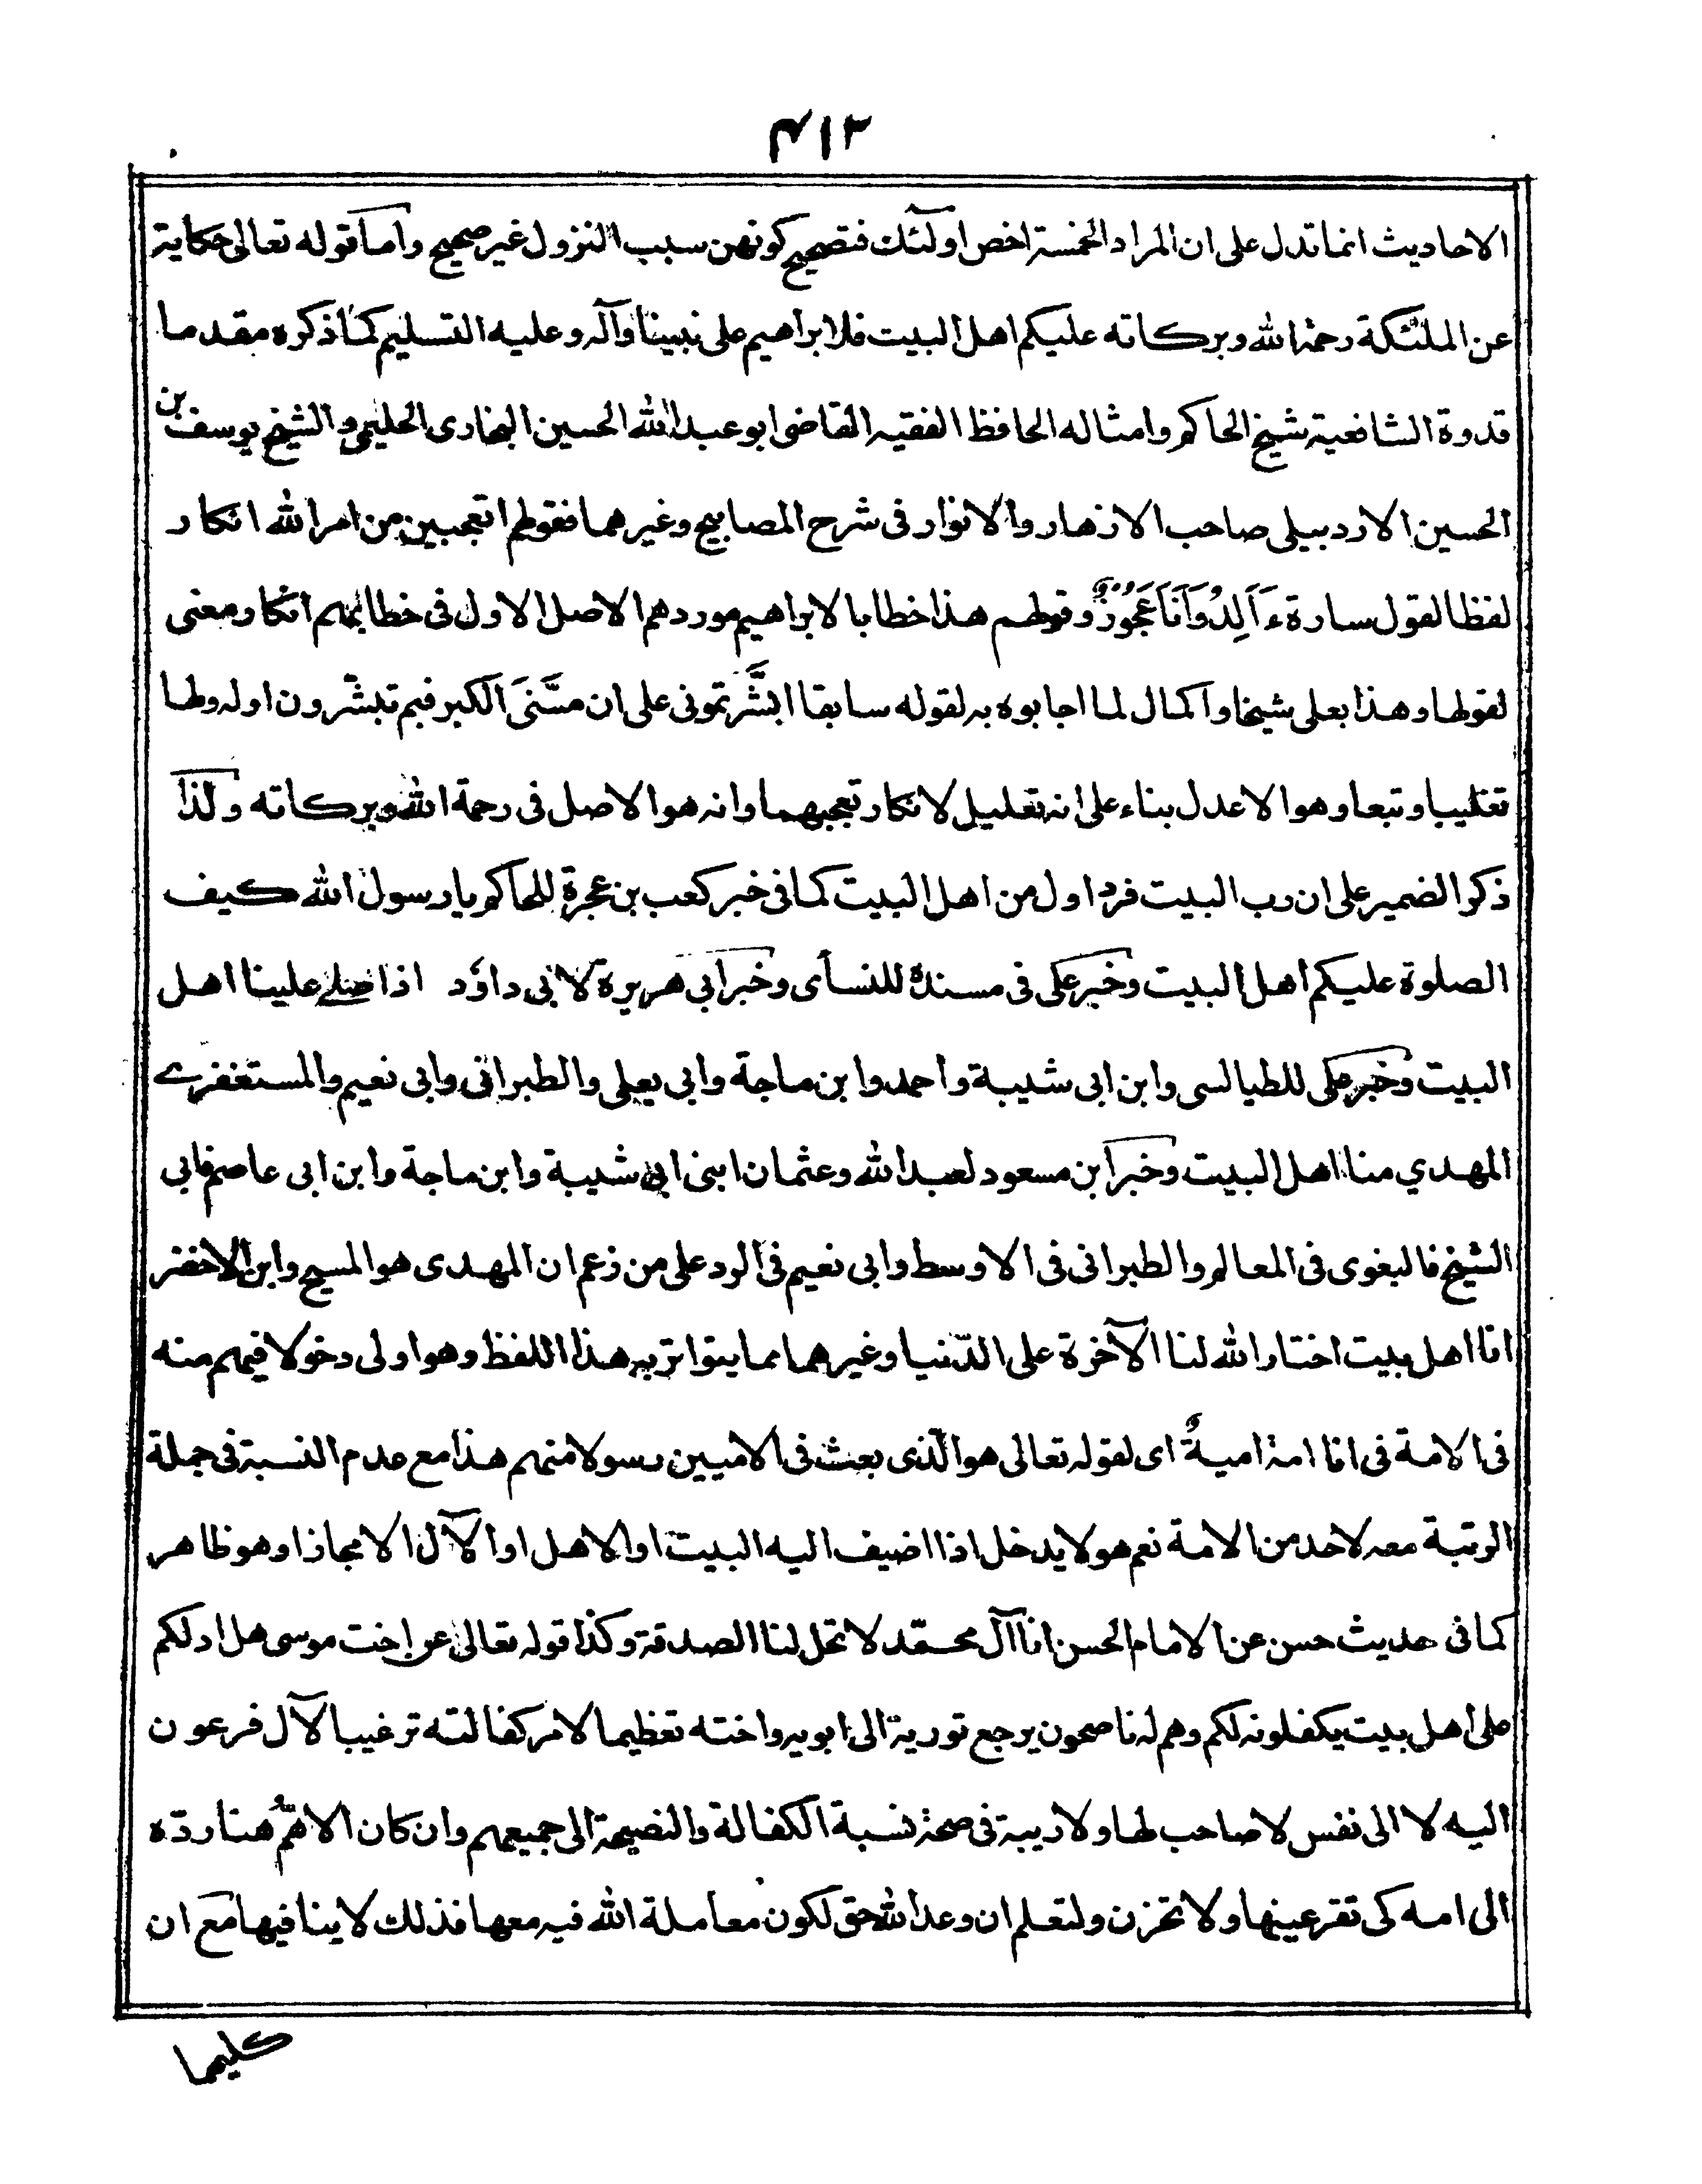 ۴۱۲
الاحاديث انما تدل على ان المراد الخمسة اخص اولٓئك فتصحيح كونهن سبب النزول غير صحيح واما قوله تعالى حكاية
عن الملئكة رحمة الله وبركاته عليكم اهل البيت فلابراهيم على نبينا وآله وعليه التسليم كما ذكره مقدما
قدوة الشافعية شيخ الحاكم وامثاله الحافظ الفقيه القاضى ابو عبد الله الحسين البخارى الحليمى والشيخ يوسف بن
الحسين الاردبيلى صاحب الازهار والانوار فى شرح المصابيح وغيرهما فقولهم اتعجبين من امر الله انكار
لفظا لقول سارة ءَاَلِدُ وَاَنَا عَجُوْزٌ وقولهم هذا خطابا لابراهيم موردهم الاصل الاول فى خطابهم انكار معنى
لقولها وهذا بعلى شيخا واكمال لما اجابوه به لقوله سابقا ابشَّرتمونى على ان مسَّنىَ الكبر فبم تبشّرون اوله ولها
تغليبا وتبعا وهو الاعدل بناء على انه تعليل لانكار تعجبهما وانه هو الاصل فى رحمة الله وبركاته ولذا
ذكر الضمير على ان رب البيت فرد اول من اهل البيت كما فى خبر كعب بن عجرة للحاكم يا رسول الله كيف
الصلوة عليكم اهل البيت وخبر على فى مسنده للنسأى وخبر ابي هريرة لابى داؤد اذا صلے علينا اهل
البيت وخبر على للطيالسى وابن ابى شيبة واحمد وابن ماجة وابي يعلى والطبرانى وابى نعيم والمستغفرے
المهدي منا اهل البيت وخبر ابن مسعود لعبد الله وعثمان ابنى ابى شيبة وابن ماجة وابن ابى عاصم فابى
الشيخ فالبغوى فى المعالم والطبرانى فى الاوسط وابى نعيم فى الرد على من زعم ان المهدى هو المسيح وابن الاخضر
انا اهل بيت اختار الله لنا الآخرة على الدّنيا وغيرهما مما يتواتر به هذا اللفظ وهو اولى دخولا فيهم منه
فى الامة فى انا امة اميةٌ اى لقوله تعالى هو الّذى بعث فى الاميين رسولا منهم هذا مع عدم النسبة فى جملة
الرتبة معه لاحد من الامة نعم هو لا يدخل اذا اضيف اليه البيت او الاهل او الآل الا مجازا وهو ظاهر
كما فى حديث حسن عن الامام الحسن انا آل محمّد لا تحل لنا الصدقة وكذا قوله تعالى عن اخت موسى هل ادلكم
على اهل بيت يكفلونه لكم وهم له ناصحون يرجع تورية الى ابويه واخته تعظيما لامر كفالته ترغيبا لآل فرعون
اليه لا الى نفس لا صاحب لها ولا ريبة فى صحة نسبة الكفالة والنصيحة الى جميعهم وان كان الاهمّ هنا ردّه
الى امه كى تقر عينها ولا تحزن ولتعلم ان وعد الله حق لكون معاملة الله فيه معها فذلك لا ينافيها مع ان
كليهما